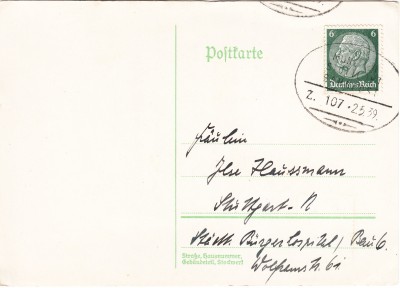 Postkarte
6 6
Deutsches Reich
Z. 107 - 2.5.39.
Fräulein
Ilse Haussmann
Stuttgart - N
Städt. Bürgerhospital / Bau 6.
Straße, Hausnummer,
Gebäudeteil, Stockwerk
Wolframstr. 61